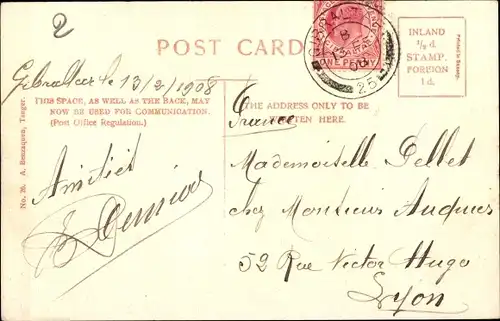 2
POST CARD
GIBRALTAR
ONE PENNY
25
INLAND
½ d.
STAMP.
FOREIGN
1 d.
Gibraltar le 13/2/1908
THIS SPACE, AS WELL AS THE BACK, MAY
NOW BE USED FOR COMMUNICATION.
(Post Office Regulation.)
THE ADDRESS ONLY TO BE
WRITTEN HERE.
France
No. 26. A. Benzaquen, Tanger.
Amitiés
Mademoiselle Pellet
chez Monsieur
52 Rue Victor Hugo
Lyon